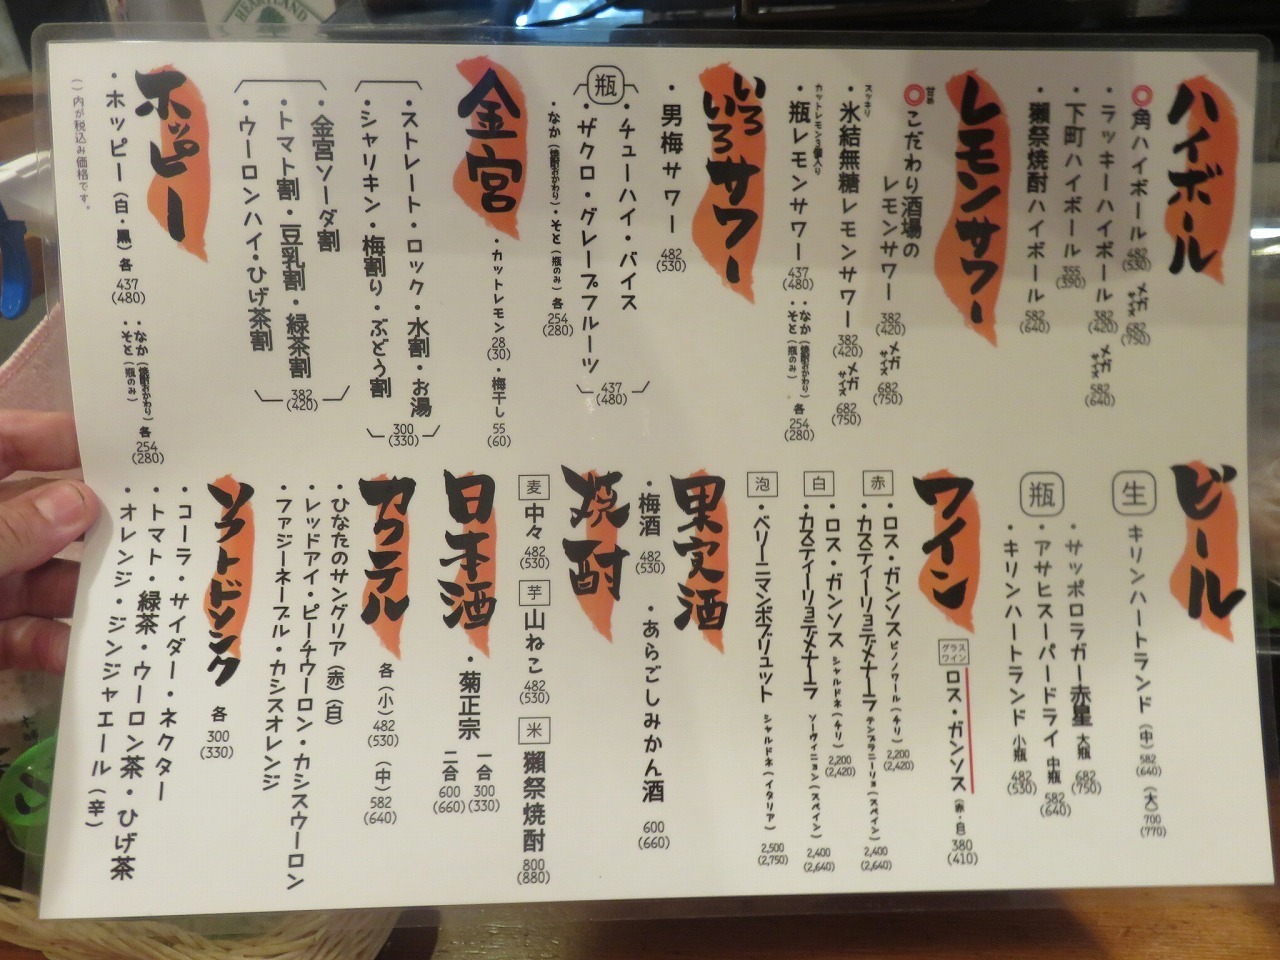 HEARTLAND
ハイボール
◎角ハイボール 482 (530) メガサイズ 682 (750)
・ラッキーハイボール 382 (420) メガサイズ 582 (640)
・下町ハイボール 355 (390)
・獺祭焼酎ハイボール 582 (640)
レモンサワー
甘め
◎こだわり酒場の
レモンサワー 382 (420) メガサイズ 682 (750)
スッキリ
・氷結無糖レモンサワー 382 (420) メガサイズ 682 (750)
カットレモン3個入り
・瓶レモンサワー 437 (480) ・なか(焼酎おかわり)・そと(瓶のみ) 各 254 (280)
いろいろサワー
・男梅サワー 482 (530)
瓶
・チューハイ・バイス
・ザクロ・グレープフルーツ
437 (480)
・なか(焼酎おかわり)・そと(瓶のみ) 各 254 (280)
金宮
・カットレモン 28 (30) ・梅干し 55 (60)
・ストレート・ロック・水割・お湯
・シャリキン・梅割り・ぶどう割
300 (330)
・金宮ソーダ割
・トマト割・豆乳割・緑茶割
・ウーロンハイ・ひげ茶割
382 (420)
ホッピー
・ホッピー(白・黒) 各 437 (480) ・なか(焼酎おかわり)・そと(瓶のみ) 各 254 (280)
( )内が税込み価格です。
ビール
生 キリンハートランド (中) 582 (640) (大) 700 (770)
瓶
・サッポロラガー赤星 大瓶 682 (750)
・アサヒスーパードライ 中瓶 582 (640)
・キリンハートランド 小瓶 482 (530)
ワイン
グラスワイン ロス・ガンソス(赤・白) 380 (410)
赤
・ロス・ガンソス ピノノワール(チリ) 2,200 (2,420)
・カスティーリョデメナーラ テンプラニーリョ(スペイン) 2,400 (2,640)
白
・ロス・ガンソス シャルドネ(チリ) 2,200 (2,420)
・カスティーリョデメナーラ ソーヴィニヨン(スペイン) 2,400 (2,640)
泡
・ベリーニマンボブリュット シャルドネ(イタリア) 2,500 (2,750)
果実酒
・梅酒 482 (530) ・あらごしみかん酒 600 (660)
焼酎
麦 中々 482 (530) 芋 山ねこ 482 (530) 米 獺祭焼酎 800 (880)
日本酒
・菊正宗 一合 300 (330) 二合 600 (660)
カクテル
各(小) 482 (530) (中) 582 (640)
・ひなたのサングリア(赤)(白)
・レッドアイ・ピーチウーロン・カシスウーロン
・ファジーネーブル・カシスオレンジ
ソフトドリンク
各 300 (330)
・コーラ・サイダー・ネクター
・トマト・緑茶・ウーロン茶・ひげ茶
・オレンジ・ジンジャエール(辛)